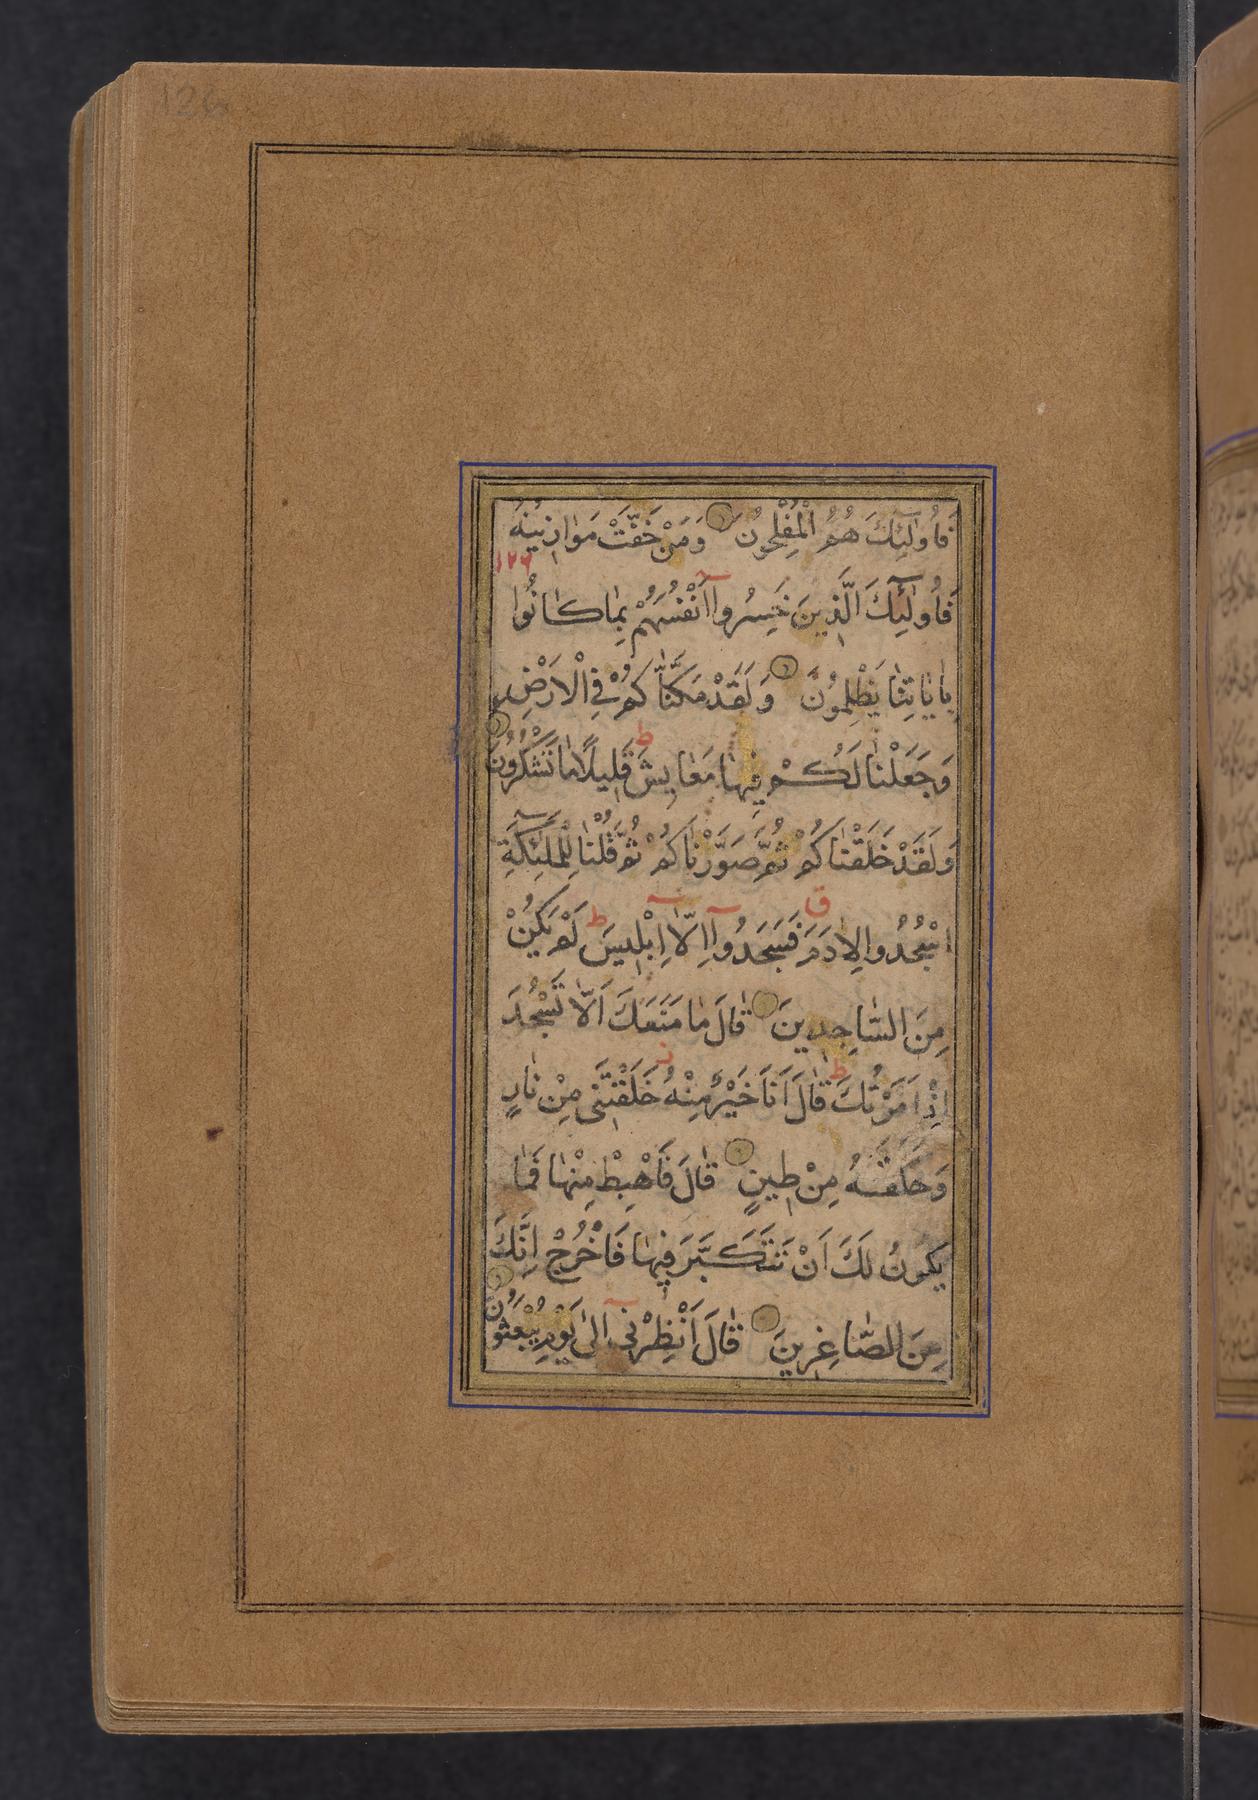 126
فَاُولٰئِكَ هُمُ الْمُفْلِحُونَ وَمَنْ خَفَّتْ مَوٰازِينُهُ
١٢٦
فَاُولٰئِكَ الَّذِينَ خَسِرُوا اَنْفُسَهُمْ بِمٰا كٰانُوا
بِاٰيٰاتِنٰا يَظْلِمُونَ وَلَقَدْ مَكَّنّٰاكُمْ فِى الْاَرْضِ
وَجَعَلْنٰا لَكُمْ فِيهٰا مَعٰايِشَ ط قَلِيلًا مٰا تَشْكُرُونَ
وَلَقَدْ خَلَقْنٰاكُمْ ثُمَّ صَوَّرْنٰاكُمْ ثُمَّ قُلْنٰا لِلْمَلٰئِكَةِ
اسْجُدُوا لِاٰدَمَ ق فَسَجَدُوا اِلّٰا اِبْلِيسَ ط لَمْ يَكُنْ
مِنَ السّٰاجِدِينَ قٰالَ مٰا مَنَعَكَ اَلّٰا تَسْجُدَ
اِذْ اَمَرْتُكَ ط قٰالَ اَنَا خَيْرٌ مِنْهُ خَلَقْتَنِى مِنْ نٰارٍ
وَخَلَقْتَهُ مِنْ طِينٍ قٰالَ فَاهْبِطْ مِنْهٰا فَمٰا
يَكُونُ لَكَ اَنْ تَتَكَبَّرَ فِيهٰا فَاخْرُجْ اِنَّكَ
مِنَ الصّٰاغِرِينَ قٰالَ اَنْظِرْنِى اِلىٰ يَوْمِ يُبْعَثُونَ